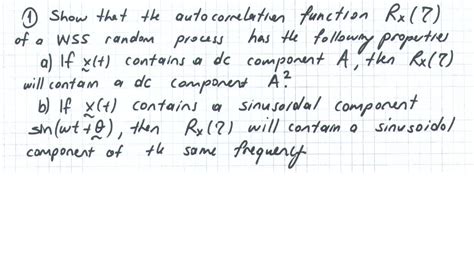 ① Show that the autocorrelation function Rx(τ)
of a WSS random process has the following properties
a) If x(t) contains a dc component A, then Rx(τ)
will contain a dc component A².
b) If x(t) contains a sinusoidal component
sin(ωt+θ), then Rx(τ) will contain a sinusoidal
component of the same frequency